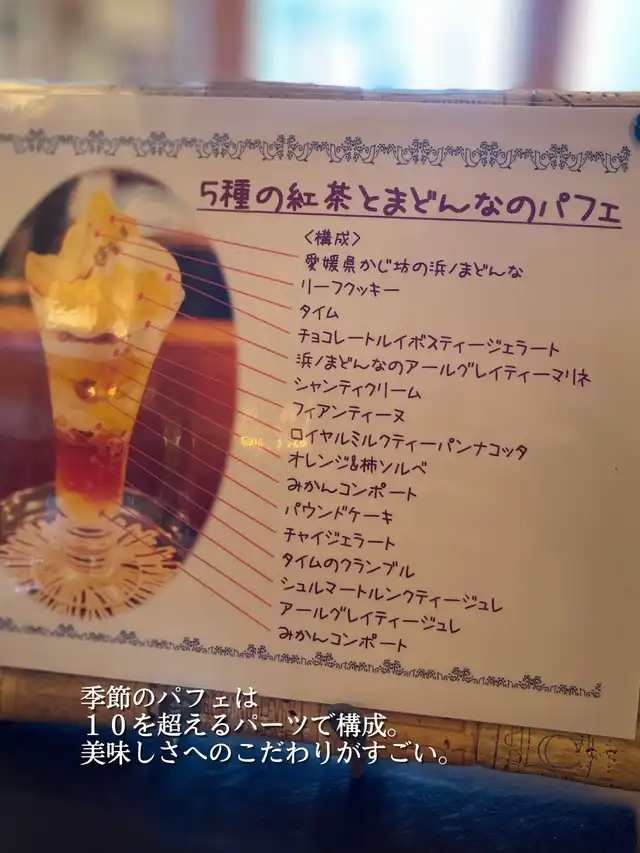 5種の紅茶とまどんなのパフェ
〈構成〉
愛媛県かじ坊の浜ノまどんな
リーフクッキー
タイム
チョコレートルイボスティージェラート
浜ノまどんなのアールグレイティーマリネ
シャンティクリーム
フィアンティーヌ
ロイヤルミルクティーパンナコッタ
オレンジ&柿ソルベ
みかんコンポート
パウンドケーキ
チャイジェラート
タイムのクランブル
シュルマートルンクティージュレ
アールグレイティージュレ
みかんコンポート
季節のパフェは
１０を超えるパーツで構成。
美味しさへのこだわりがすごい。